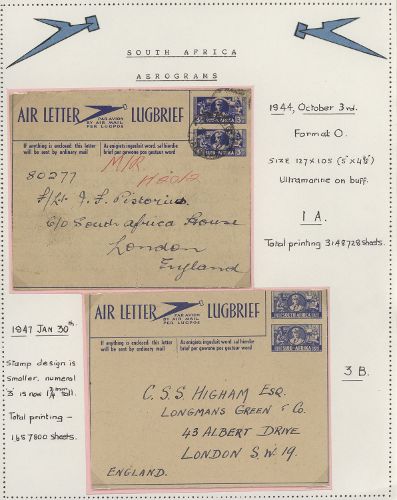 SOUTH AFRICA
AEROGRAMS
AIR LETTER LUGBRIEF
PAR AVION
BY AIR MAIL
PER LUGPOS
If anything is enclosed this letter
will be sent by ordinary mail
As enigiets ingesluit word sal hierdie
brief per gewone pos gestuur word
80277
F/Lt. J. F. Pistorius
C/o South Africa House
London
England
1944, October 3rd.
Format O.
SIZE 127 x 105 (5" x 4⅛")
Ultramarine on buff.
1 A.
Total printing 3148728 sheets.
1947 JAN 30th.
Stamp design is
smaller, numeral
'3' is now 1¾mm tall.
Total printing -
1687800 sheets.
AIR LETTER LUGBRIEF
PAR AVION
BY AIR MAIL
PER LUGPOS
If anything is enclosed this letter
will be sent by ordinary mail
As enigiets ingesluit word, sal hierdie
brief per gewone pos gestuur word
SOUTH AFRICA
C.S.S HIGHAM ESQ.
LONGMANS GREEN & Co.
43 ALBERT DRIVE
LONDON S.W.19.
ENGLAND.
3 B.